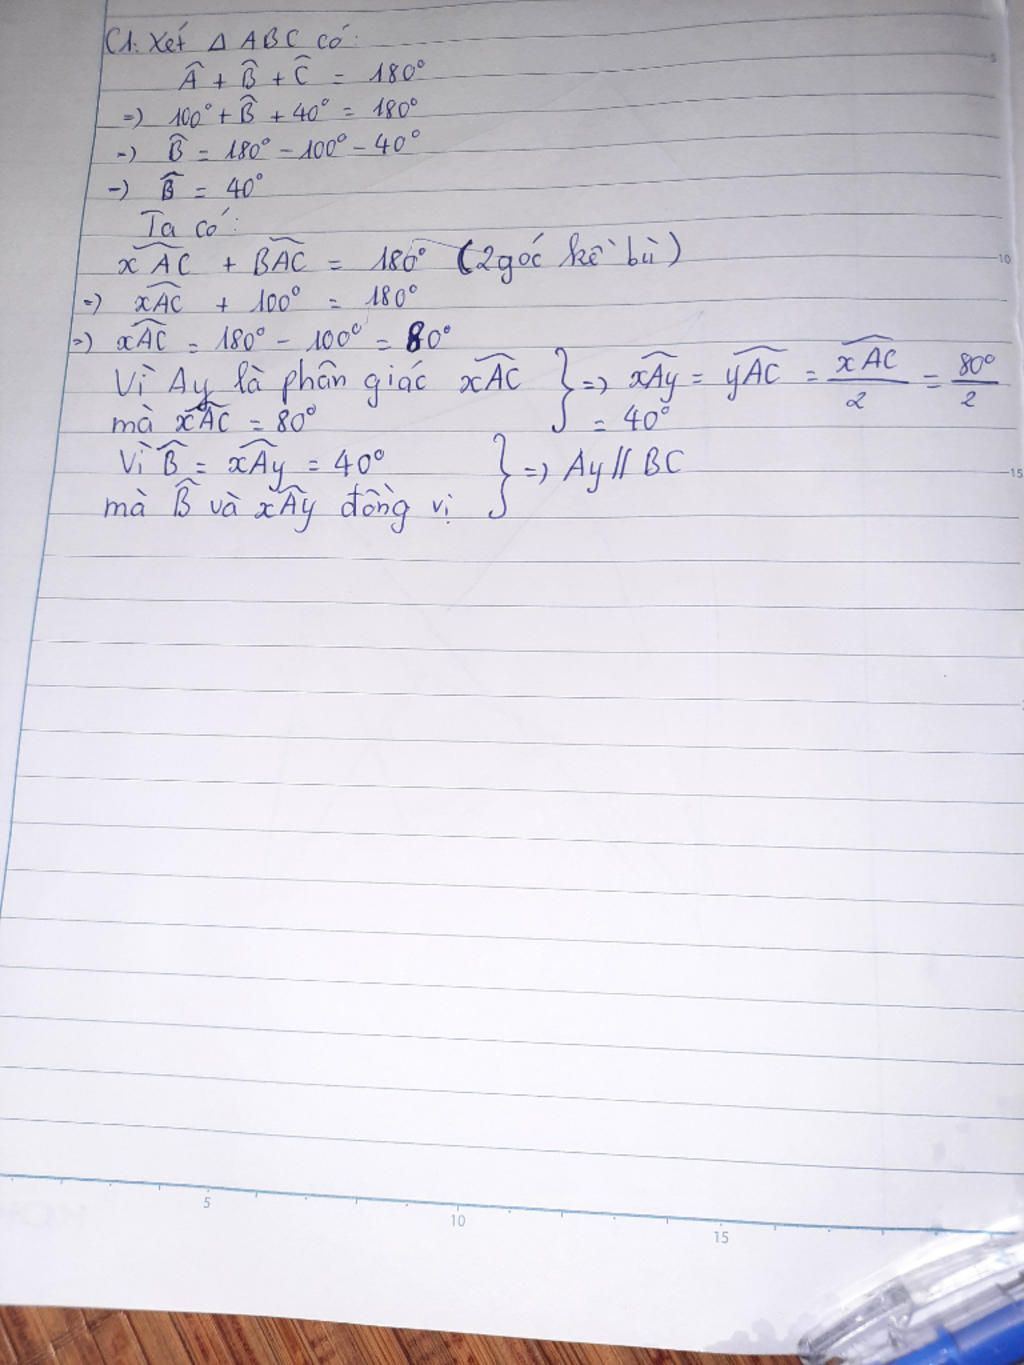 C1: Xét Δ ABC có:
Â + B̂ + Ĉ = 180°
=) 100° + B̂ + 40° = 180°
-) B̂ = 180° - 100° - 40°
-) B̂ = 40°
Ta có:
x͡AC + B͡AC = 180° (2 góc kề bù)
=) x͡AC + 100° = 180°
=) x͡AC = 180° - 100° = 80°
Vì Ay là phân giác x͡AC } =) x͡Ay = y͡AC = x͡AC/2 = 80°/2
mà x͡AC = 80° = 40°
Vì B̂ = x͡Ay = 40° } =) Ay // BC
mà B̂ và x͡Ay đồng vị
5
10
15
5
10
15